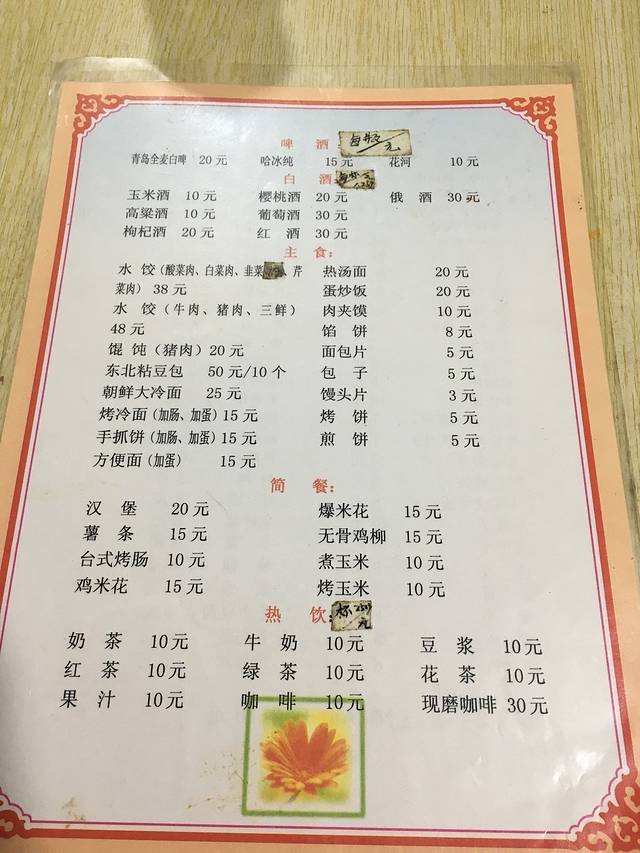 啤 酒 每瓶/元
青岛全麦白啤 20元 哈冰纯 15元 花河 10元
白 酒:
玉米酒 10元 樱桃酒 20元 俄 酒 30元
高粱酒 10元 葡萄酒 30元
枸杞酒 20元 红 酒 30元
主 食:
水 饺(酸菜肉、白菜肉、韭菜 、芹 热汤面 20元
菜肉) 38元 蛋炒饭 20元
水 饺(牛肉、猪肉、三鲜) 肉夹馍 10元
48元 馅 饼 8元
馄 饨(猪肉)20元 面包片 5元
东北粘豆包 50元/10个 包 子 5元
朝鲜大冷面 25元 馒头片 3元
烤冷面(加肠、加蛋)15元 烤 饼 5元
手抓饼(加肠、加蛋)15元 煎 饼 5元
方便面(加蛋) 15元
简 餐:
汉 堡 20元 爆米花 15元
薯 条 15元 无骨鸡柳 15元
台式烤肠 10元 煮玉米 10元
鸡米花 15元 烤玉米 10元
热 饮:
奶 茶 10元 牛 奶 10元 豆 浆 10元
红 茶 10元 绿 茶 10元 花 茶 10元
果 汁 10元 咖 啡 10元 现磨咖啡 30元